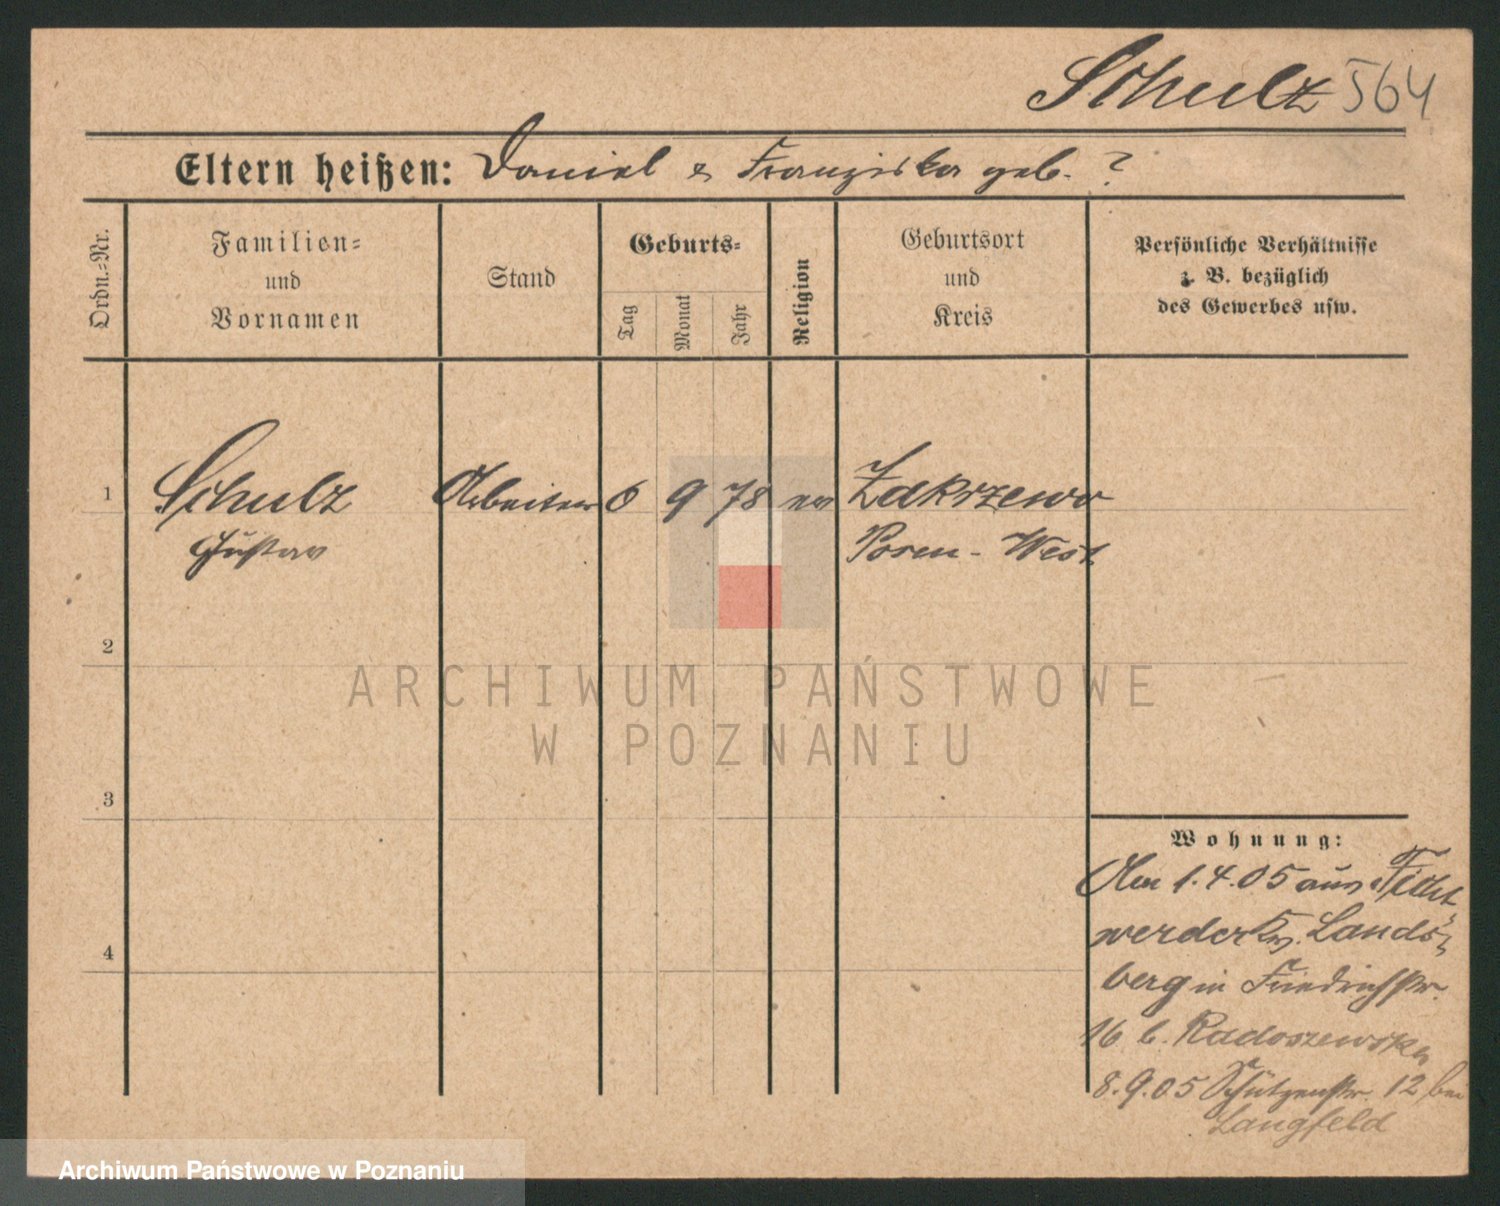 Schulz 564
Eltern heißen: Daniel & Franziska geb. ?
Ordn.-Nr.
Familien-
und
Vornamen
Stand
Geburts-
Tag
Monat
Jahr
Religion
Geburtsort
und
Kreis
Persönliche Verhältnisse
z. B. bezüglich
des Gewerbes usw.
1 Schulz Arbeiter 6 9 78 ev Zakrzewo
Gustav Posen-West
2
ARCHIWUM PAŃSTWOWE
W POZNANIU
3
Wohnung:
Am 1.4.05 aus Ficht
werder Kr. Lands-
4
berg in Friedrichstr.
16 b. Radoszewska
8.9.05 Schützenstr. 12 bei
Langfeld
Archiwum Państwowe w Poznaniu